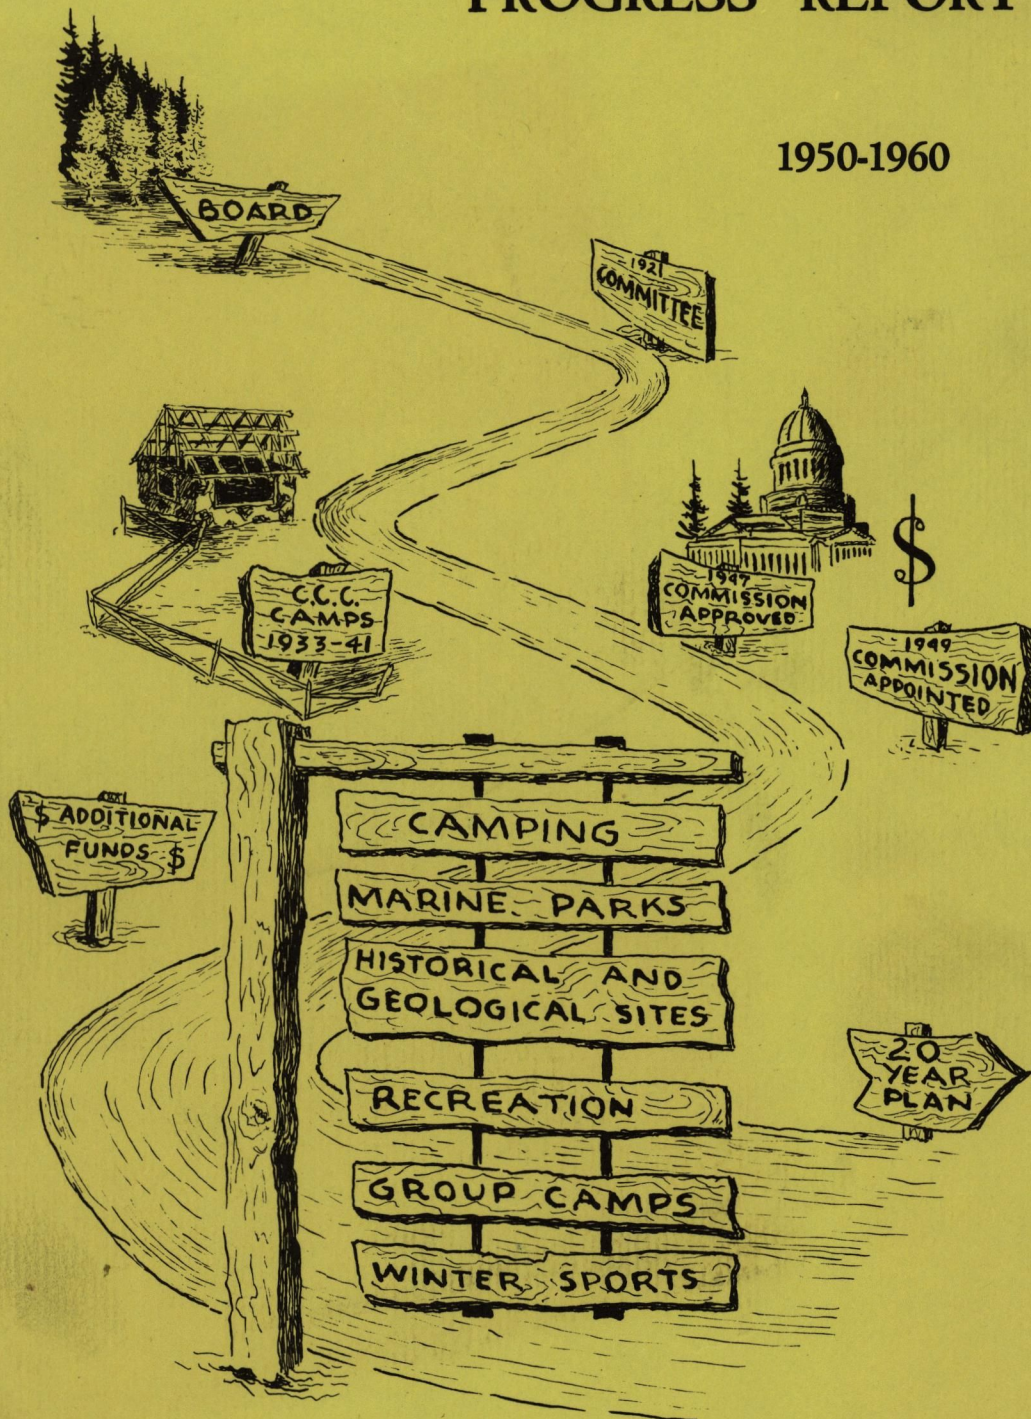 PROGRESS REPORT
1950-1960
BOARD
1921
COMMITTEE
$
C.C.C.
CAMPS
1933-41
1947
COMMISSION
APPROVED
1949
COMMISSION
APPOINTED
$ ADDITIONAL
FUNDS $
CAMPING
MARINE PARKS
HISTORICAL AND
GEOLOGICAL SITES
RECREATION
GROUP CAMPS
WINTER SPORTS
20
YEAR
PLAN